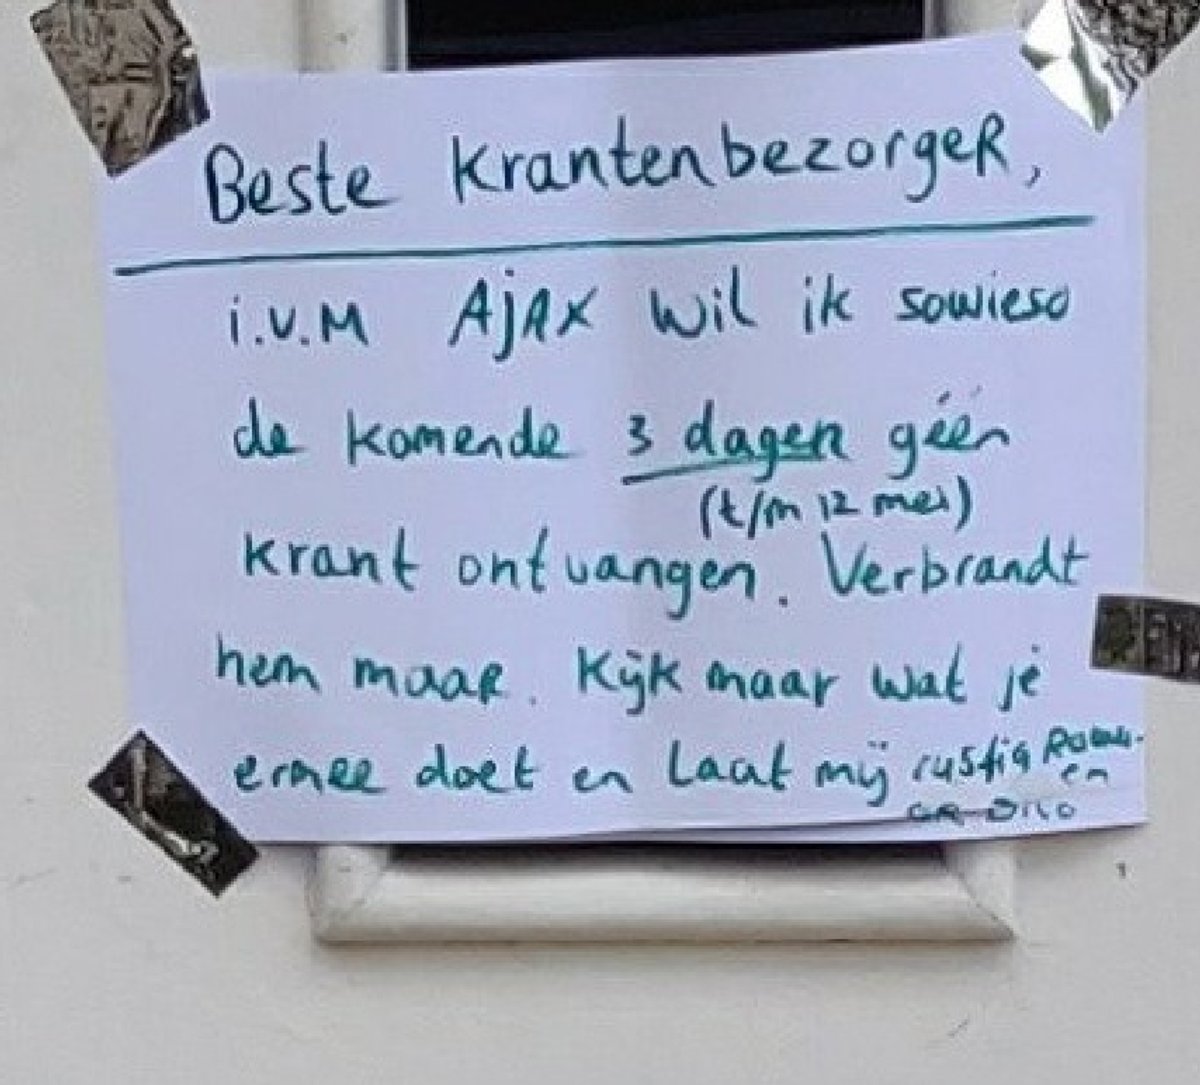 Beste krantenbezorger,
i.v.m Ajax wil ik sowieso
de komende 3 dagen géén
(t/m 12 mei)
krant ontvangen. Verbrandt
hem maar. Kijk maar wat je
ermee doet en laat mij rustig rouw-
en
GR Dilo